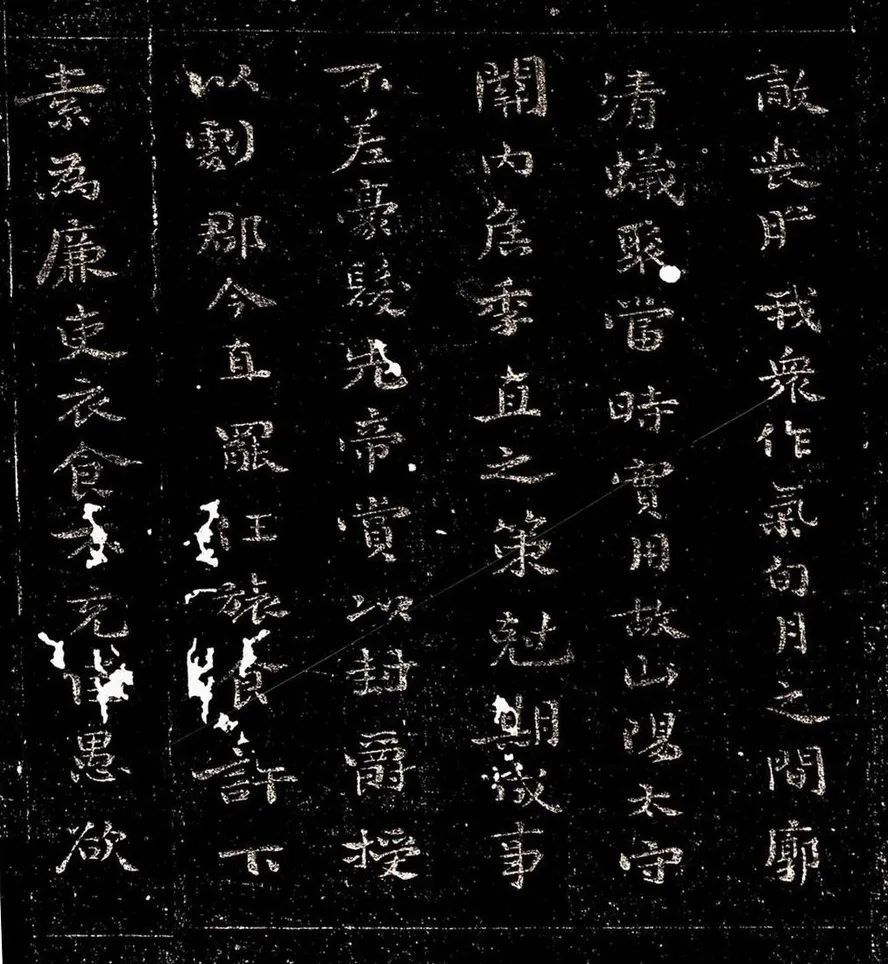 敵喪我眾作氣旬月之間廓
清蟻聚當時實用故山陽太守
關內侯季直之策尅期成事
不差豪髮先帝賞以封爵授
以劇郡今直罷任旅食許下
素為廉吏衣食不充臣愚欲